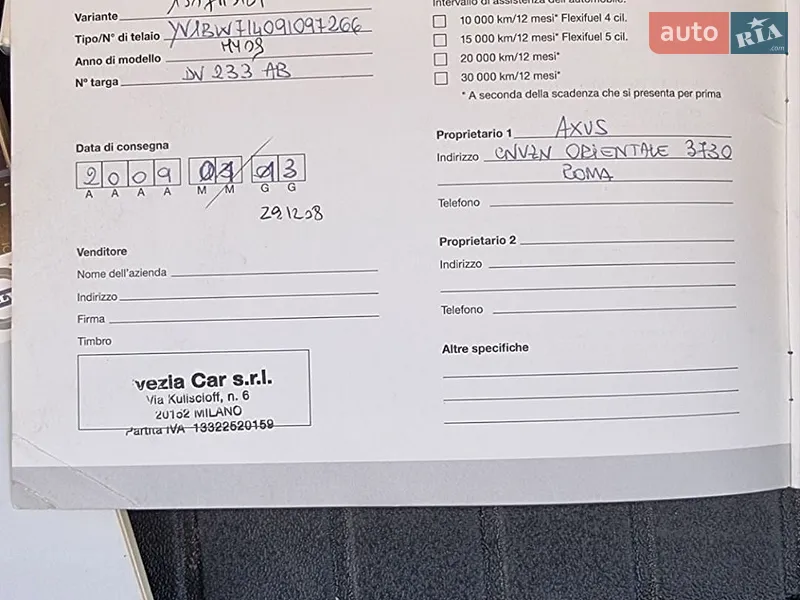 Variante
Tipo/N° di telaio YV1BW714091097266
Anno di modello MY09
N° targa DV 233 AB
Data di consegna
2009
A A A A M M G G
29.12.08
Venditore
Nome dell'azienda
Indirizzo
Firma
Timbro
vezia Car s.r.l.
Via Kuliscioff, n. 6
20152 MILANO
Partita IVA 13322520159
Intervallo di assistenza dell'automobile:
10 000 km/12 mesi* Flexifuel 4 cil.
15 000 km/12 mesi* Flexifuel 5 cil.
20 000 km/12 mesi*
30 000 km/12 mesi*
* A seconda della scadenza che si presenta per prima
Proprietario 1 AXUS
Indirizzo ORIENTALE 3730
ROMA
Telefono
Proprietario 2
Indirizzo
Telefono
Altre specifiche
auto RIA .com